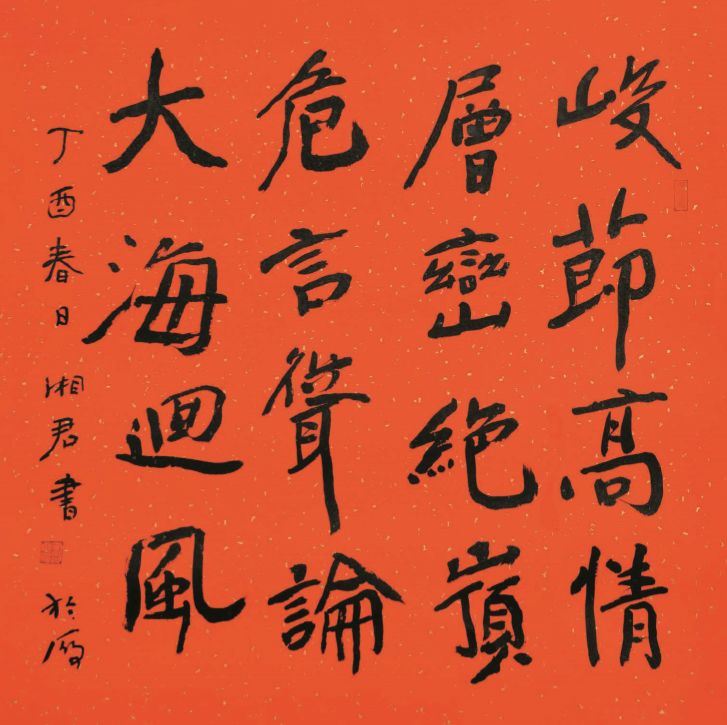 峻節高情
層巒絶嶺
危言聳論
大海迴風
丁酉春日湘君書
於